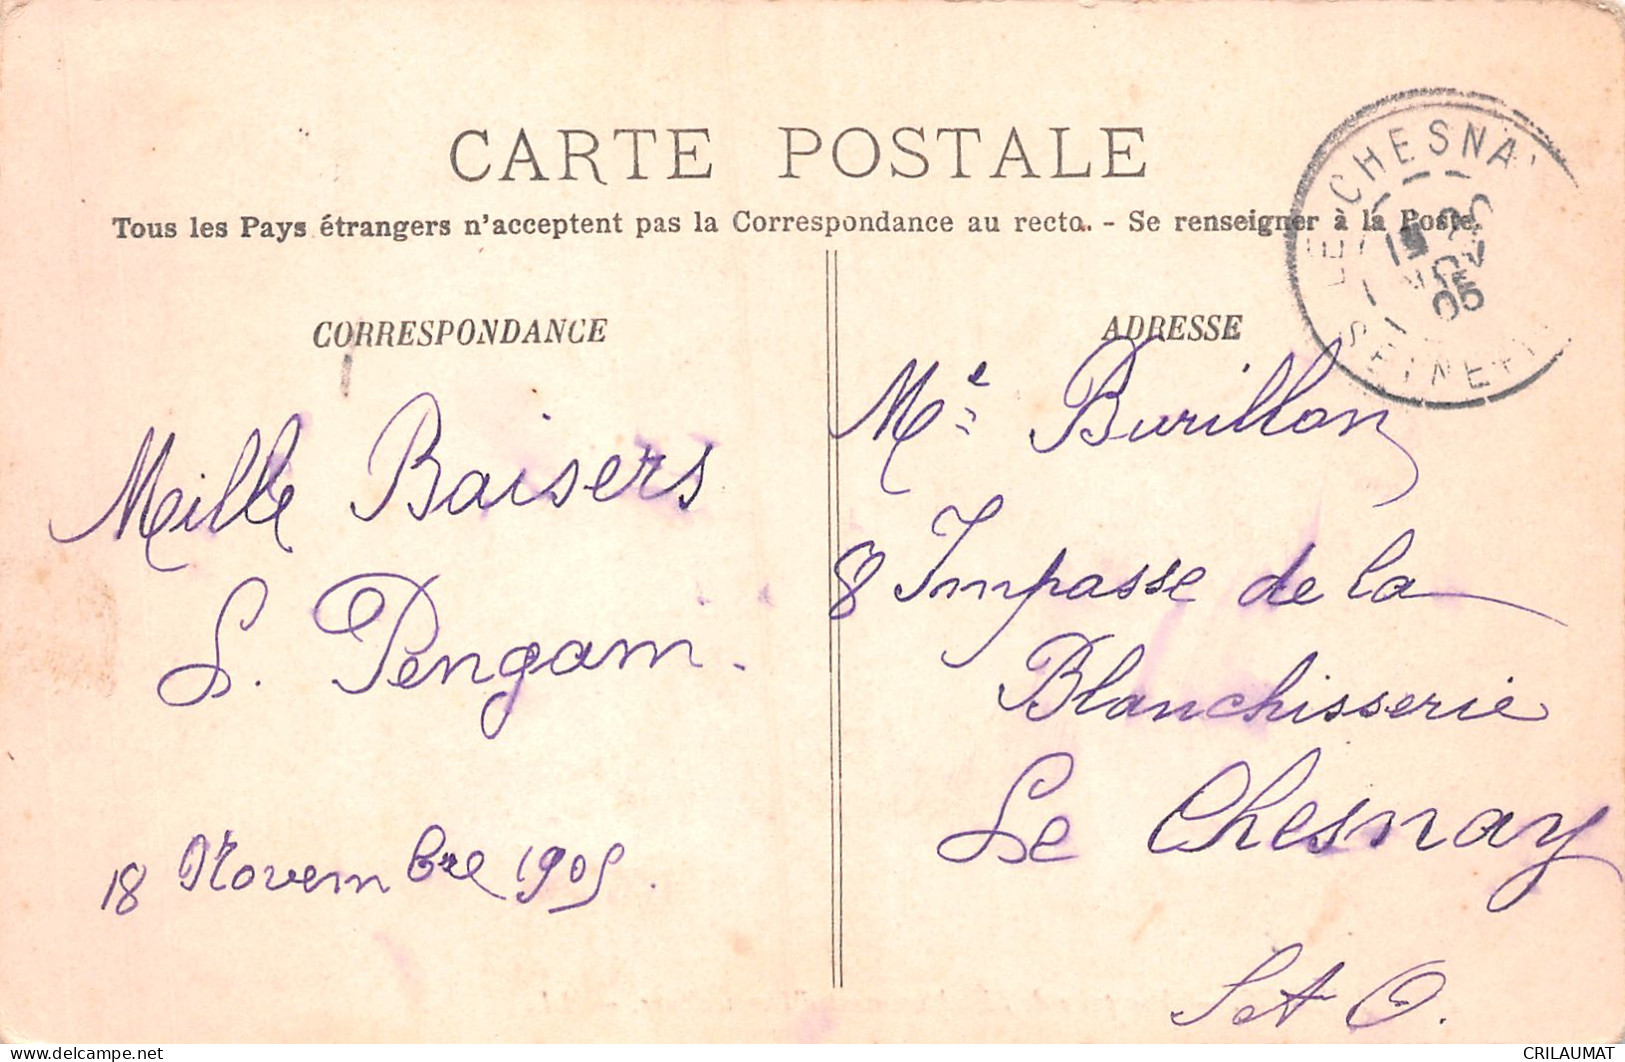 CARTE POSTALE
Tous les Pays étrangers n'acceptent pas la Correspondance au recto. - Se renseigner à la Poste.
CORRESPONDANCE
Mille Baisers
S. Pengam.
18 Novembre 1905.
ADRESSE
Me Burillon
8 Impasse de la
Blanchisserie
Le Chesnay
S et O.
LE CHESNAY
19
NOV
05
SEINE-ET-
CRILAUMAT